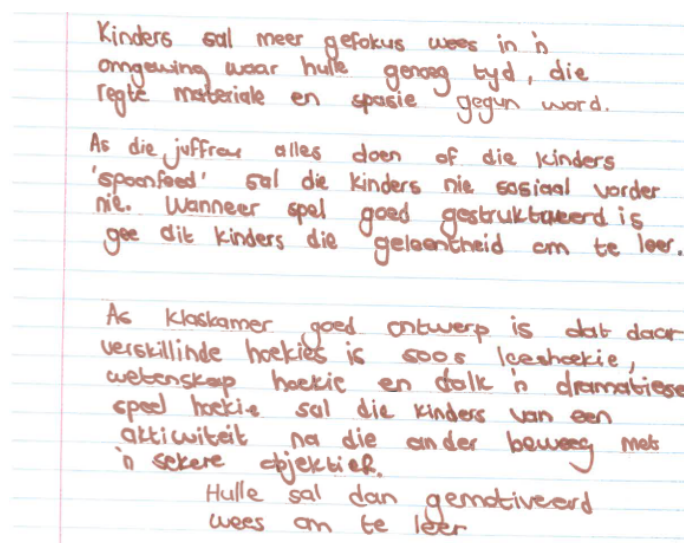 Kinders sal meer gefokus wees in 'n
omgewing waar hulle genoeg tyd, die
regte materiale en spasie gegun word.
As die juffrou alles doen of die kinders
'spoonfeed' sal die kinders nie sosiaal vorder
nie. Wanneer spel goed gestruktureerd is
gee dit kinders die geleentheid om te leer.
As klaskamer goed ontwerp is dat daar
verskillinde hoekies is soos leeshoekie,
wetenskap hoekie en dalk 'n dramatiese
speel hoekie sal die kinders van een
aktiwiteit na die ander beweeg met
'n sekere objektief.
Hulle sal dan gemotiveerd
wees om te leer